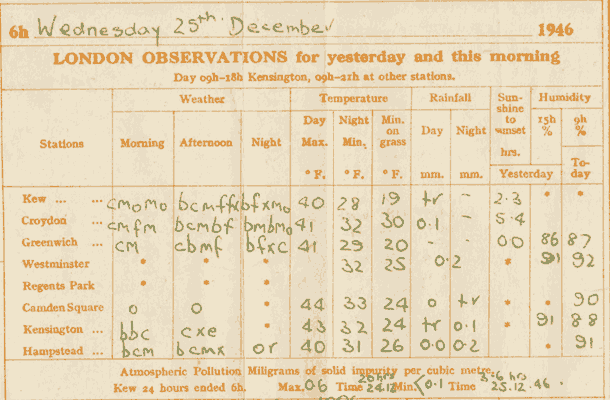 6h Wednesday 25th December 1946
LONDON OBSERVATIONS for yesterday and this morning
Day 09h-18h Kensington, 09h-21h at other stations.
Stations Weather Temperature Rainfall Sun-shine to sunset hrs. Humidity
Morning Afternoon Night Day Max. Night Min. Min. on grass Day Night 15h % 9h %
° F. ° F. ° F. mm. mm. Yesterday To-day
Kew ... ... cmomo bcmffx bfxmo 40 28 19 tr - 2.3 * *
Croydon ... cmfm bcmbf bmbmo 41 32 30 0.1 - 5.4
Greenwich ... cm cbmf bfxc 41 29 20 - - 00 86 87
Westminster * * * 32 25 0.2 * 91 92
Regents Park * * *
Camden Square o o * 44 33 24 0 tr * * 90
Kensington ... bbc cxe * 43 32 24 tr 0.1 * 91 88
Hampstead ... bcm bcmx or 40 31 26 0.0 0.2 * 91
Atmospheric Pollution Miligrams of solid impurity per cubic metre.
Kew 24 hours ended 6h. Max. 0.6 Time 20hrs 24.12 Min. <0.1 Time 5-6 hrs 25.12.46.